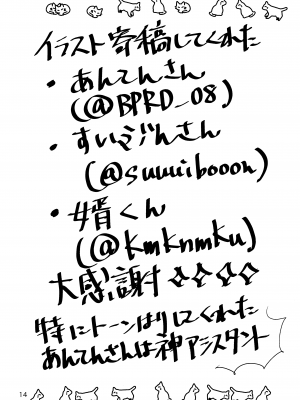 イラスト寄稿してくれた
・あんてんさん
(@BPRD_08)
・すいミジんさん
(@suuuibooon)
・婿くん
(@kmknmku)
大感謝!!✧✧✧✧
特にトーンはりしてくれた
あんてんさんは神アシスタント
14